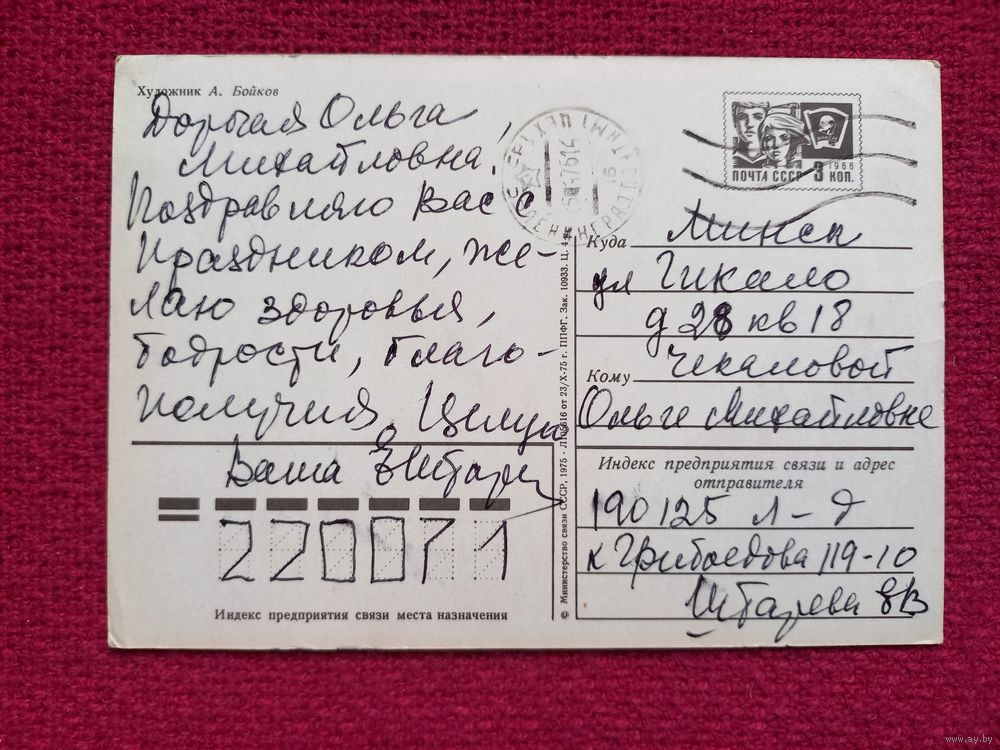 Художник А. Бойков
Дорогая Ольга
Михайловна,
Поздравляю Вас с
Праздником, же-
лаю здоровья,
бодрости, благо-
получия. Целую
Ваша
220071
Индекс предприятия связи места назначения
© Министерство связи СССР, 1975 · Л105616 от 23/X-75 г. ППФГ. Зак. 10933. Ц. 4 к.
ЛЕНИНГРАД
ПОЧТА СССР 3 КОП.
1966
ВЛКСМ
Куда Минск
ул Гикало
д 28 кв 18
Чекаловой
Кому
Ольге Михайловне
Индекс предприятия связи и адрес
отправителя
190125 Л-д
к Грибоедова 119-10
www.ay.by